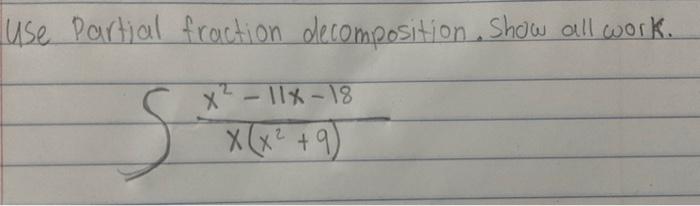 Use Partial fraction decomposition. Show all work.
∫ x² - 11x - 18 / x(x² + 9)